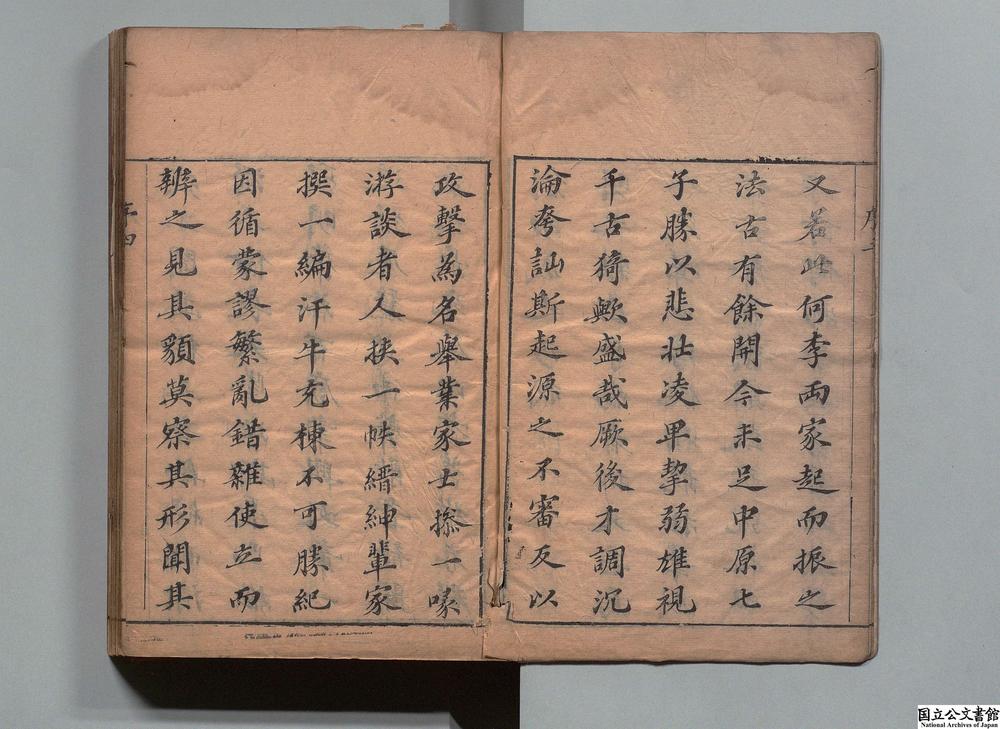 又若此何李兩家起而振之
法古有餘開今未足中原七
子勝以悲壯凌卑摯弱雄視
千古猗歟盛哉厥後才調沉
淪夸訕斯起源之不審反以
攻擊為名舉業家士操一喙
游談者人挾一帙縉紳輩家
撰一編汗牛充棟不可勝紀
因循蒙謬繁亂錯雜使立而
辨之見其貌莫察其形聞其
序四
国立公文書館
National Archives of Japan